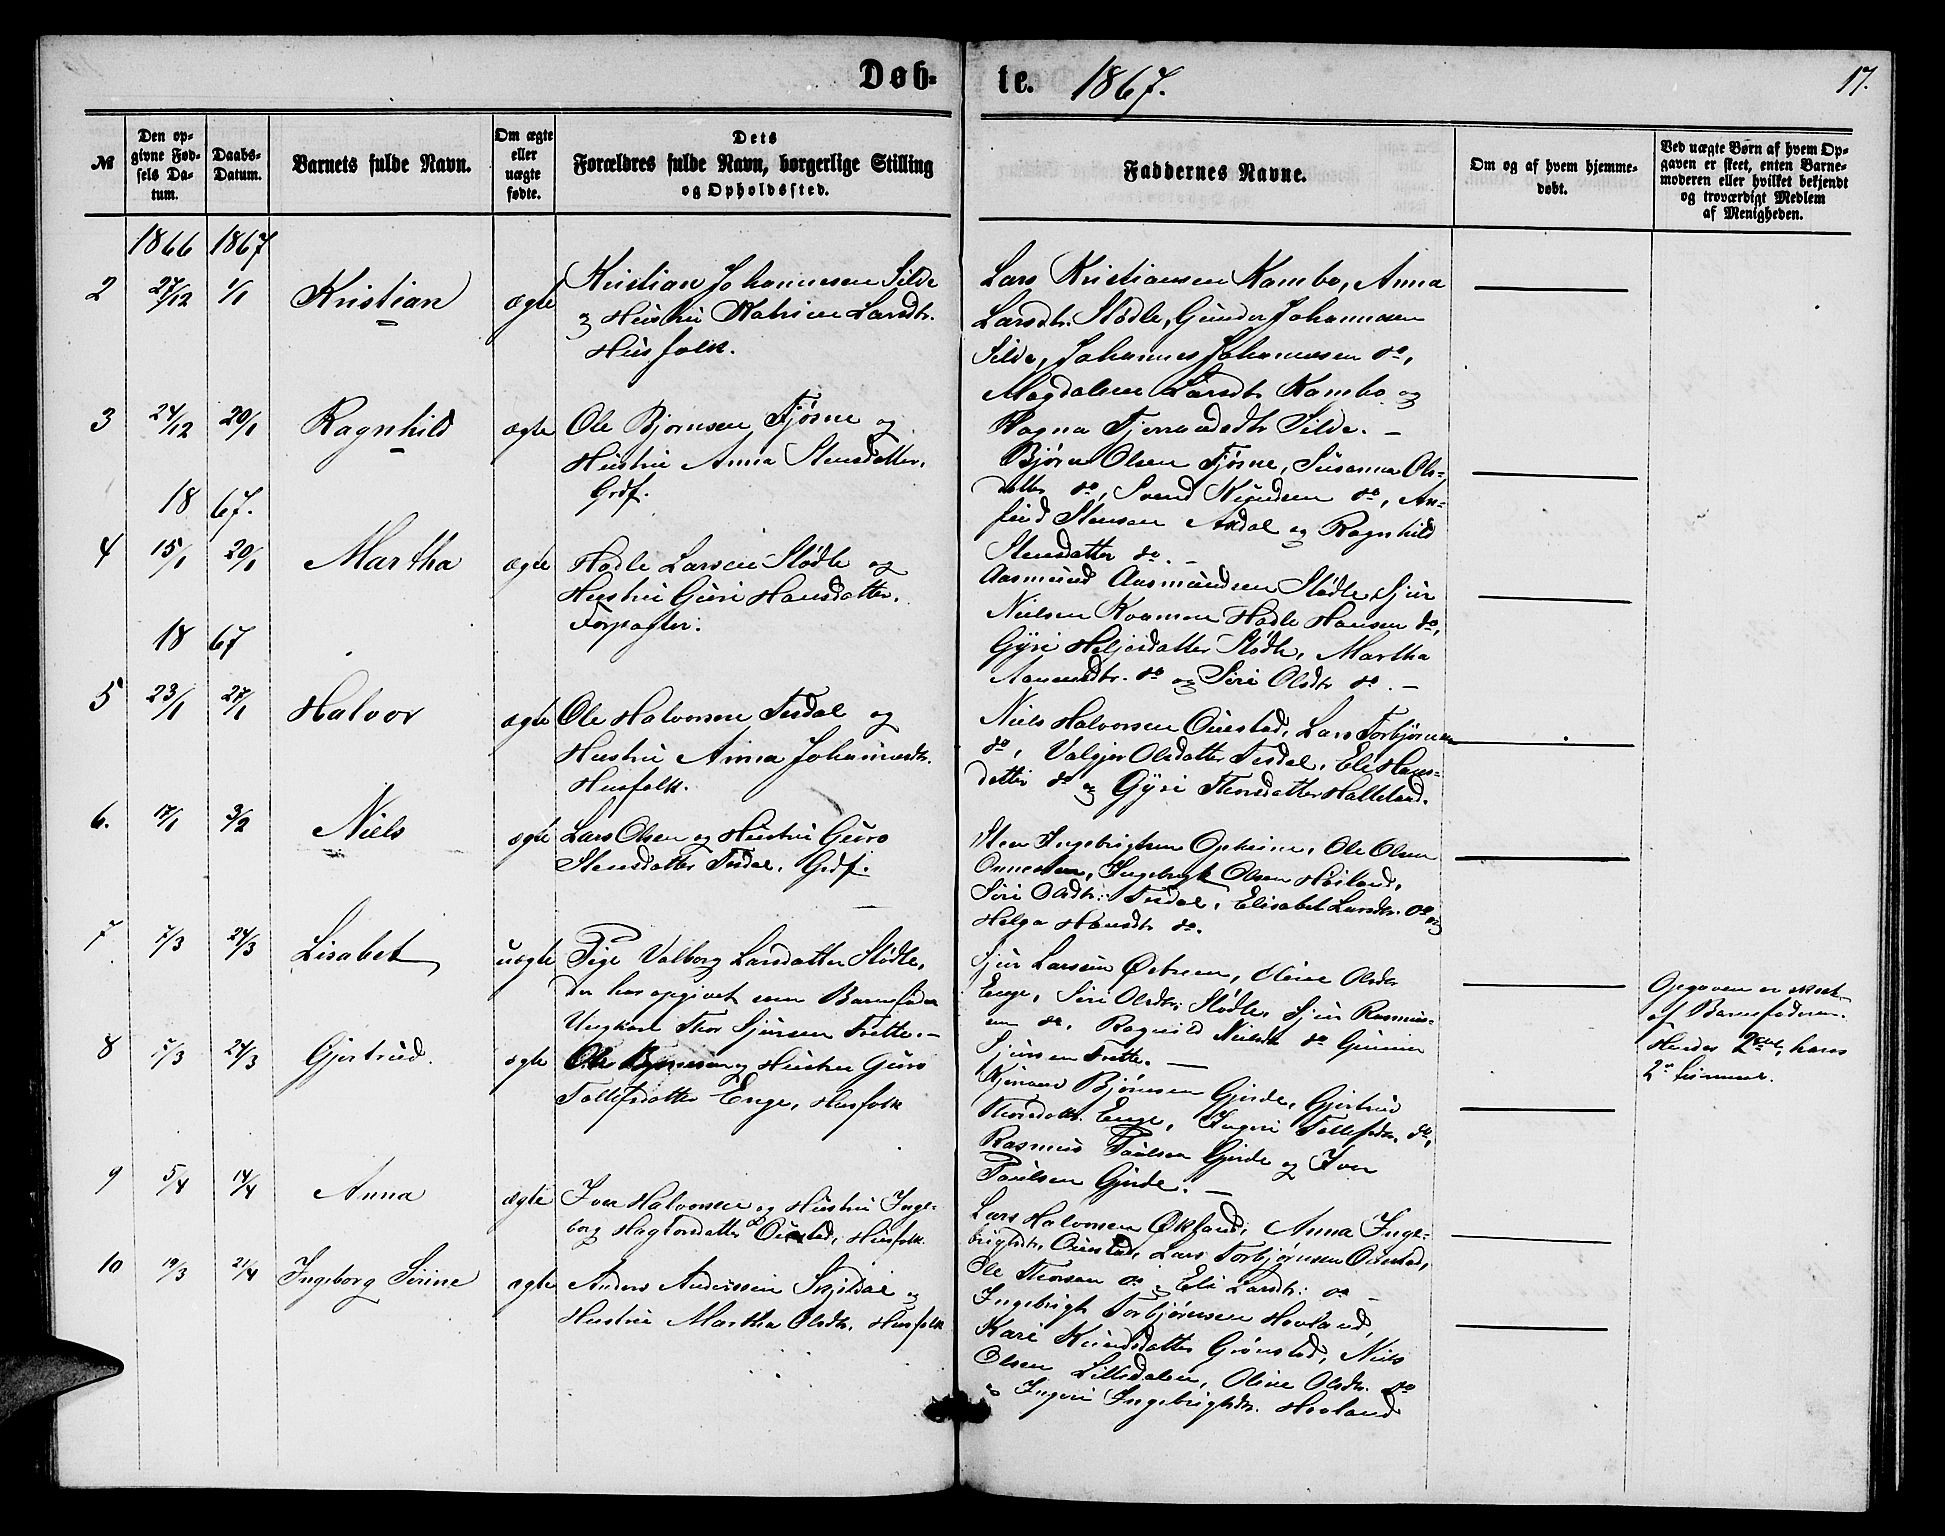 Døb-
te. 1867.
17.
№
Den op-
givne Fød-
sels Da-
tum.
Daabs-
Datum.
Barnets fulde Navn.
Om ægte
eller
uægte
fødte.
Dets
Forældres fulde Navn, borgerlige Stilling
og Opholdssted.
Faddernes Navne.
Om og af hvem hjemme-
døbt.
Ved uægte Børn af hvem Op-
gaven er skeet, enten Barne-
moderen eller hvilket bekjendt
og troværdigt Medlem
af Menigheden.
1866 1867
2 27/12 1/1 Kristian ægte
Kristian Johannesen Silde
og Hustru Katrine Larsdtr.
Husfolk.
Lars Kristiansen Kambo, Anna
Larsdtr. Stødle, Gunder Johannesen
Silde, Johannes Johannesen do,
Magdalene Larsdtr Kambo og
Ragna Silde. -
3 24/12 20/1 Ragnhild ægte
Ole Bjørnsen Fjøsne og
Hustru Anna Stensdatter,
Grdf.
Bjørn Olsen Fjøsne, Susanna Ols-
datter do, Svend Knudsen do, An-
find Stensen Axdal og Ragnhild
Stensdatter do. -
18 67.
4 15/1 20/1 Martha ægte
Hodle Larsen Stødle og
Hustru Guri Hansdatter.
Forpagter.
Aasmund Aasmundsen Stødle, Sjur
Nielsen Hodle Hansen do,
Gyri Stødle, Martha
do og Siri Olsdtr do. -
18 67
5 23/1 27/1 Halvor ægte
Ole Halvorsen Tesdal og
Hustru Anna Johannesdtr.
Husfolk.
Niels Halvorsen Østestad, Lars Torbjørnsen
do, Valgjer Olsdatter Tesdal, Eli Hans-
datter do og Gyri Thorsdatter Halleland.
6. 17/1 3/2 Niels ægte
Lars Olsen og Hustru Guro
Stensdatter Tesdal. Grdf.
Sten Ingebrigtsen Opheim, Ole Olsen
Ingebrigt Olsen Høiland,
Siri Olsdtr. Tesdal, Elisabet Larsdtr. do og
Helga Hansdtr do.
7 7/3 24/3 Lisabet uægte
Pige Valborg Larsdatter Stødle,
der har opgivet som Barnefader
Ungkarl Thor Sjursen Frette. -
Sjur Larsen Østrem, Oline Olsdtr
Enge, Siri Olsdtr. Stødle, Sjur Rasmus-
sen do, Ragnild Nielsdtr do Gunnar
Sjursen Frette. -
Opgaven er skeet
af Barnefaderen.
Hendes 2det, hans
2det Leiermaal.
8 5/3 24/3 Gjertrud. ægte
Ole og Hustru Guro
Tollefsdatter Enge, Husfolk
Bjørnsen Gjerde, Gjertrud
Thorsdatter Enge, Ingeri Tollefsdtr. do,
Rasmus Paulsen Gjerde og Iver
Paulsen Gjerde. -
9 5/4 14/4 Anna ægte
Iver Halvorsen og Hustru Inge-
borg Hagtorsdatter Østestad, Husfolk
Lars Halvorsen Økland, Anna Inge-
brigtsdtr. Østestad, Lars Torbjørnsen Østestad,
Ole Thorsen do og Eli Larsdtr. do -
10 19/3 21/4 Ingeborg Serine ægte
Anders Anderssen Skjeldal og
Hustru Martha Olsdtr. Husfolk
Ingebrigt Torbjørnsen Hovland,
Kari Knudsdatter Grønstad, Niels
Olsen Lillesdalen, Oline Olsdtr. do
og Ingeri Ingebrigtsdtr. Hovland